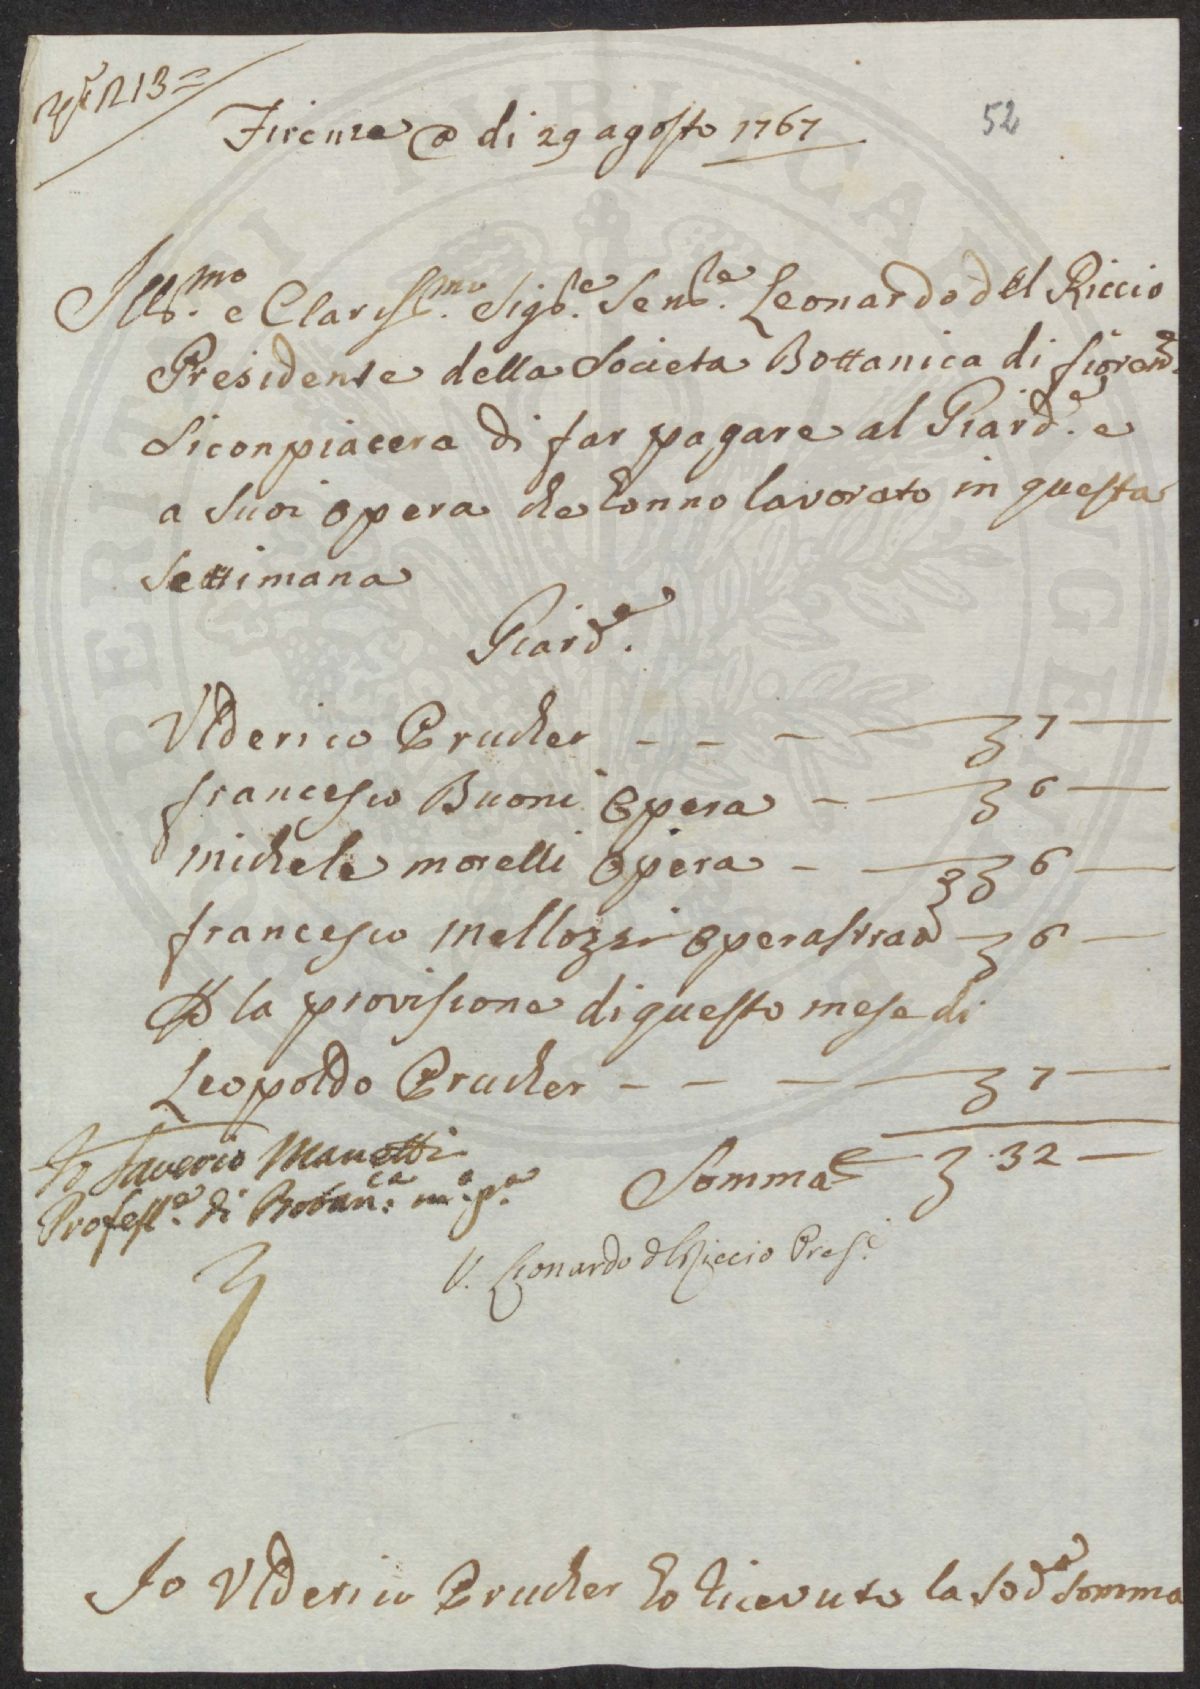 213
Firenze a di 29 agosto 1767
52
Ill.mo e Clariss.mo Sig.re Sen.re Leonardo del Riccio
Presidente della Societa Bottanica di fioren.
Siconpiacera di far pagare al Giard.e e
a suoi opera che honno lavorato in questa
settimana
Giard.e
Vlderico Prucher - - - 7
francesco Buoni opera - 6
michele morelli opera - 6
francesco mellozzi opera strad 6
P la provisione di questo mese di
Leopoldo Prucher - - - 7
Somma 32
Io Saverio Manetti
Profess.e di Botan.ca m.o p.a
V. Lionardo del Riccio Pres.e
Io Vlderico Prucher ho ricevuto la sod.a somma
PERITI PVBLICAE